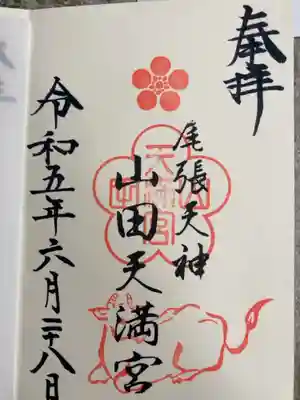 奉拝
尾張天神
山田天満宮
令和五年六月二十八日